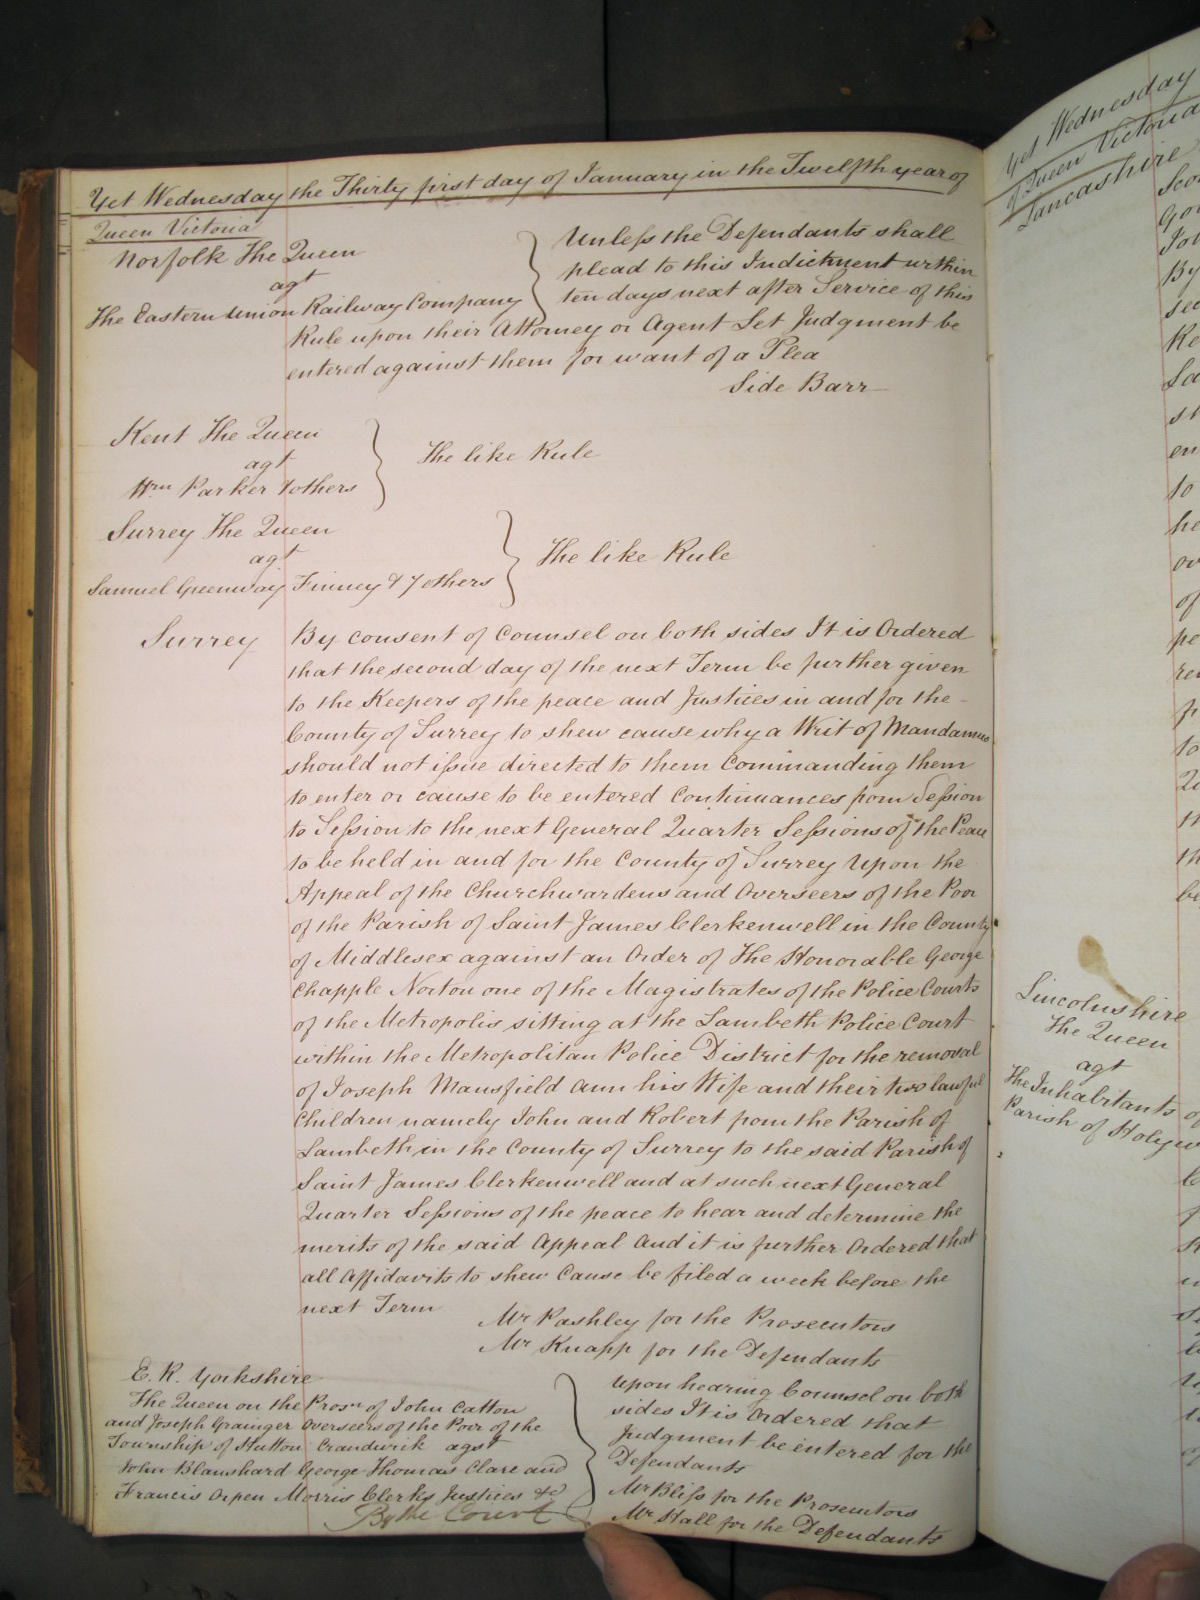 Yet Wednesday the Thirty first day of January in the Twelfth year of
Queen Victoria
Norfolk The Queen
agt
The Eastern Union Railway Company
Unless the Defendants shall
plead to this Indictment within
ten days next after Service of this
Rule upon their Attorney or Agent Let Judgment be
entered against them for want of a Plea
Side Barr
Kent The Queen
agt
Wm Parker & others
The like Rule
Surrey The Queen
agt
Samuel Greenway Finney & 7 others
The like Rule
Surrey
By consent of Counsel on both sides It is Ordered
that the second day of the next Term be further given
to the Keepers of the peace and Justices in and for the
County of Surrey to shew cause why a Writ of Mandamus
should not issue directed to them Commanding them
to enter or cause to be entered Continuances from Session
to Session to the next General Quarter Sessions of the Peace
to be held in and for the County of Surrey Upon the
Appeal of the Churchwardens and Overseers of the Poor
of the Parish of Saint James Clerkenwell in the County
of Middlesex against an Order of The Honorable George
Chapple Norton one of the Magistrates of the Police Courts
of the Metropolis sitting at the Lambeth Police Court
within the Metropolitan Police District for the removal
of Joseph Mansfield Ann his Wife and their two lawful
Children namely John and Robert from the Parish of
Lambeth in the County of Surrey to the said Parish of
Saint James Clerkenwell and at such next General
Quarter Sessions of the peace to hear and determine the
merits of the said Appeal And it is further Ordered that
all Affidavits to shew Cause be filed a week before the
next Term
Mr Pashley for the Prosecutors
Mr Knapp for the Defendants
E. R. Yorkshire
The Queen on the Prosn of John Catton
and Joseph Grainger Overseers of the Poor of the
Township of Hutton Crandwick agst
John Blanshard George Thomas Clare and
Francis Orpen Morris Clerks Justices &c
By the Court
Upon hearing Counsel on both
sides It is Ordered that
Judgment be entered for the
Defendants
Mr Bliss for the Prosecutors
Mr Hall for the Defendants
Yet Wednesday
of Queen Victoria
Lancashire
Lincolnshire
The Queen
agt
The Inhabitants of
Parish of